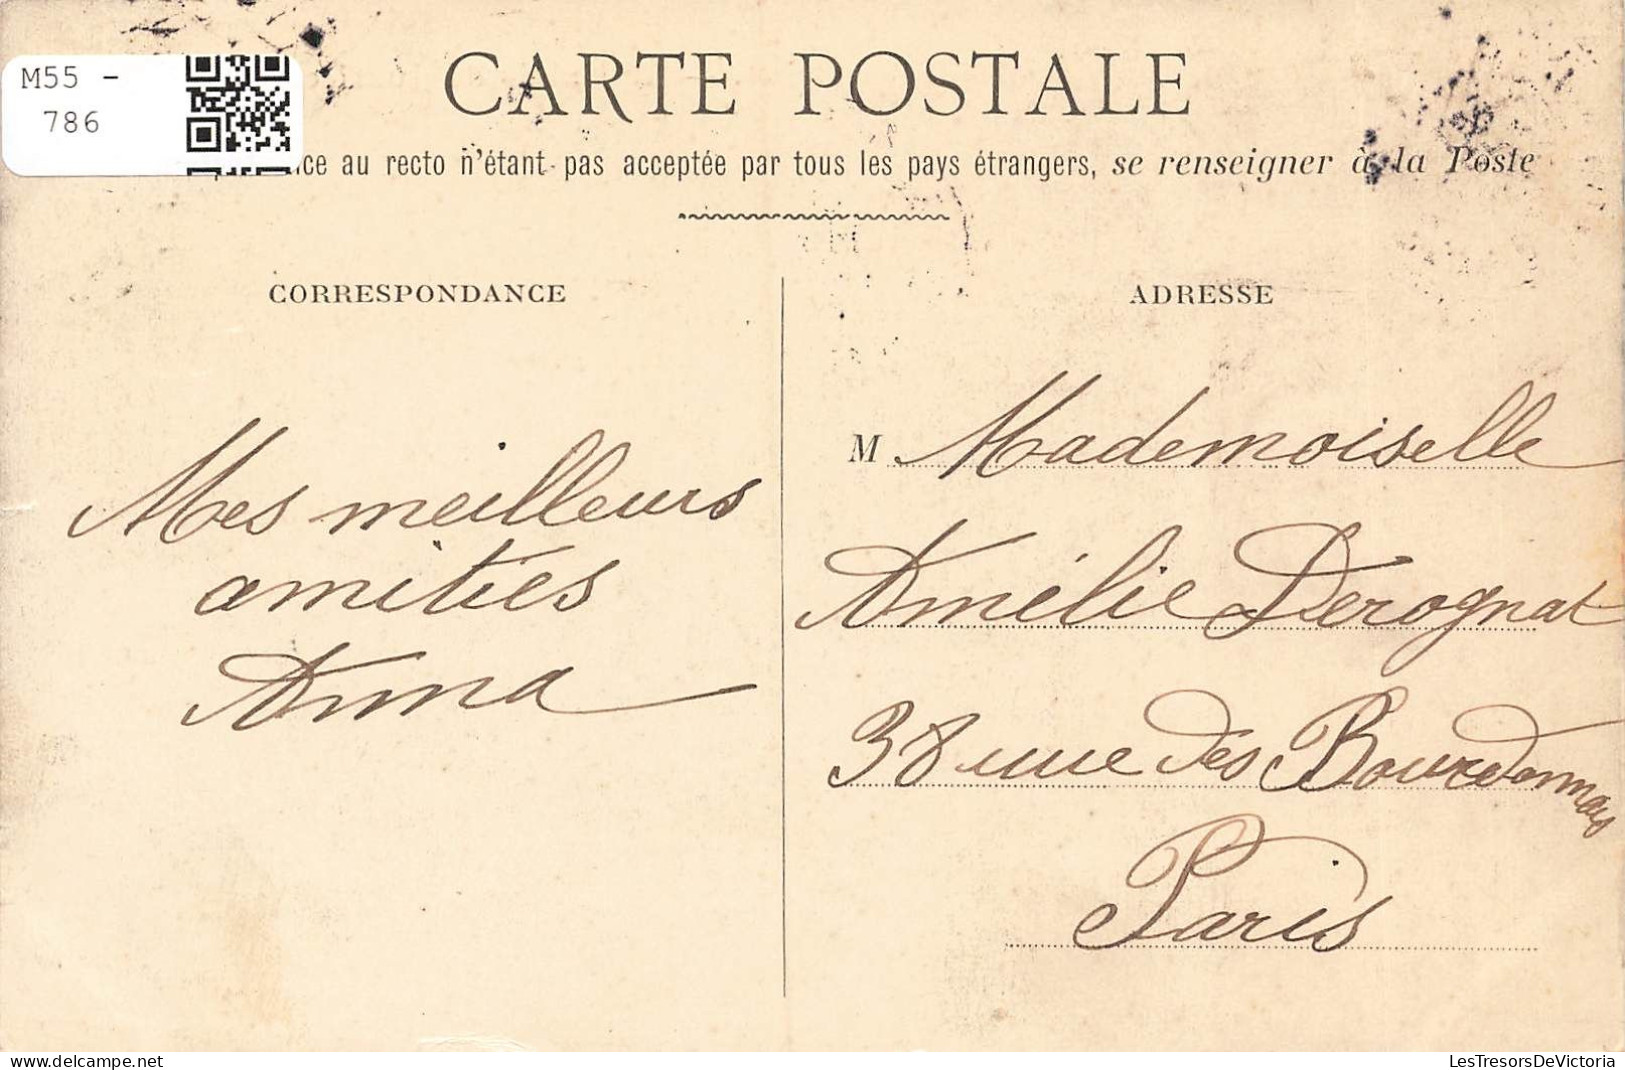 M55 -
786
CARTE POSTALE
ce au recto n'étant pas acceptée par tous les pays étrangers, se renseigner à la Poste
CORRESPONDANCE
ADRESSE
Mes meilleurs
amitiés
Anna
M Mademoiselle
Amélie Derognat
38 rue des Bourdonnais
Paris
delcampe.net
LesTresorsDeVictoria